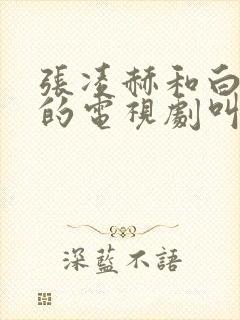 張凌赫和白
的電視劇叫
深藍不語